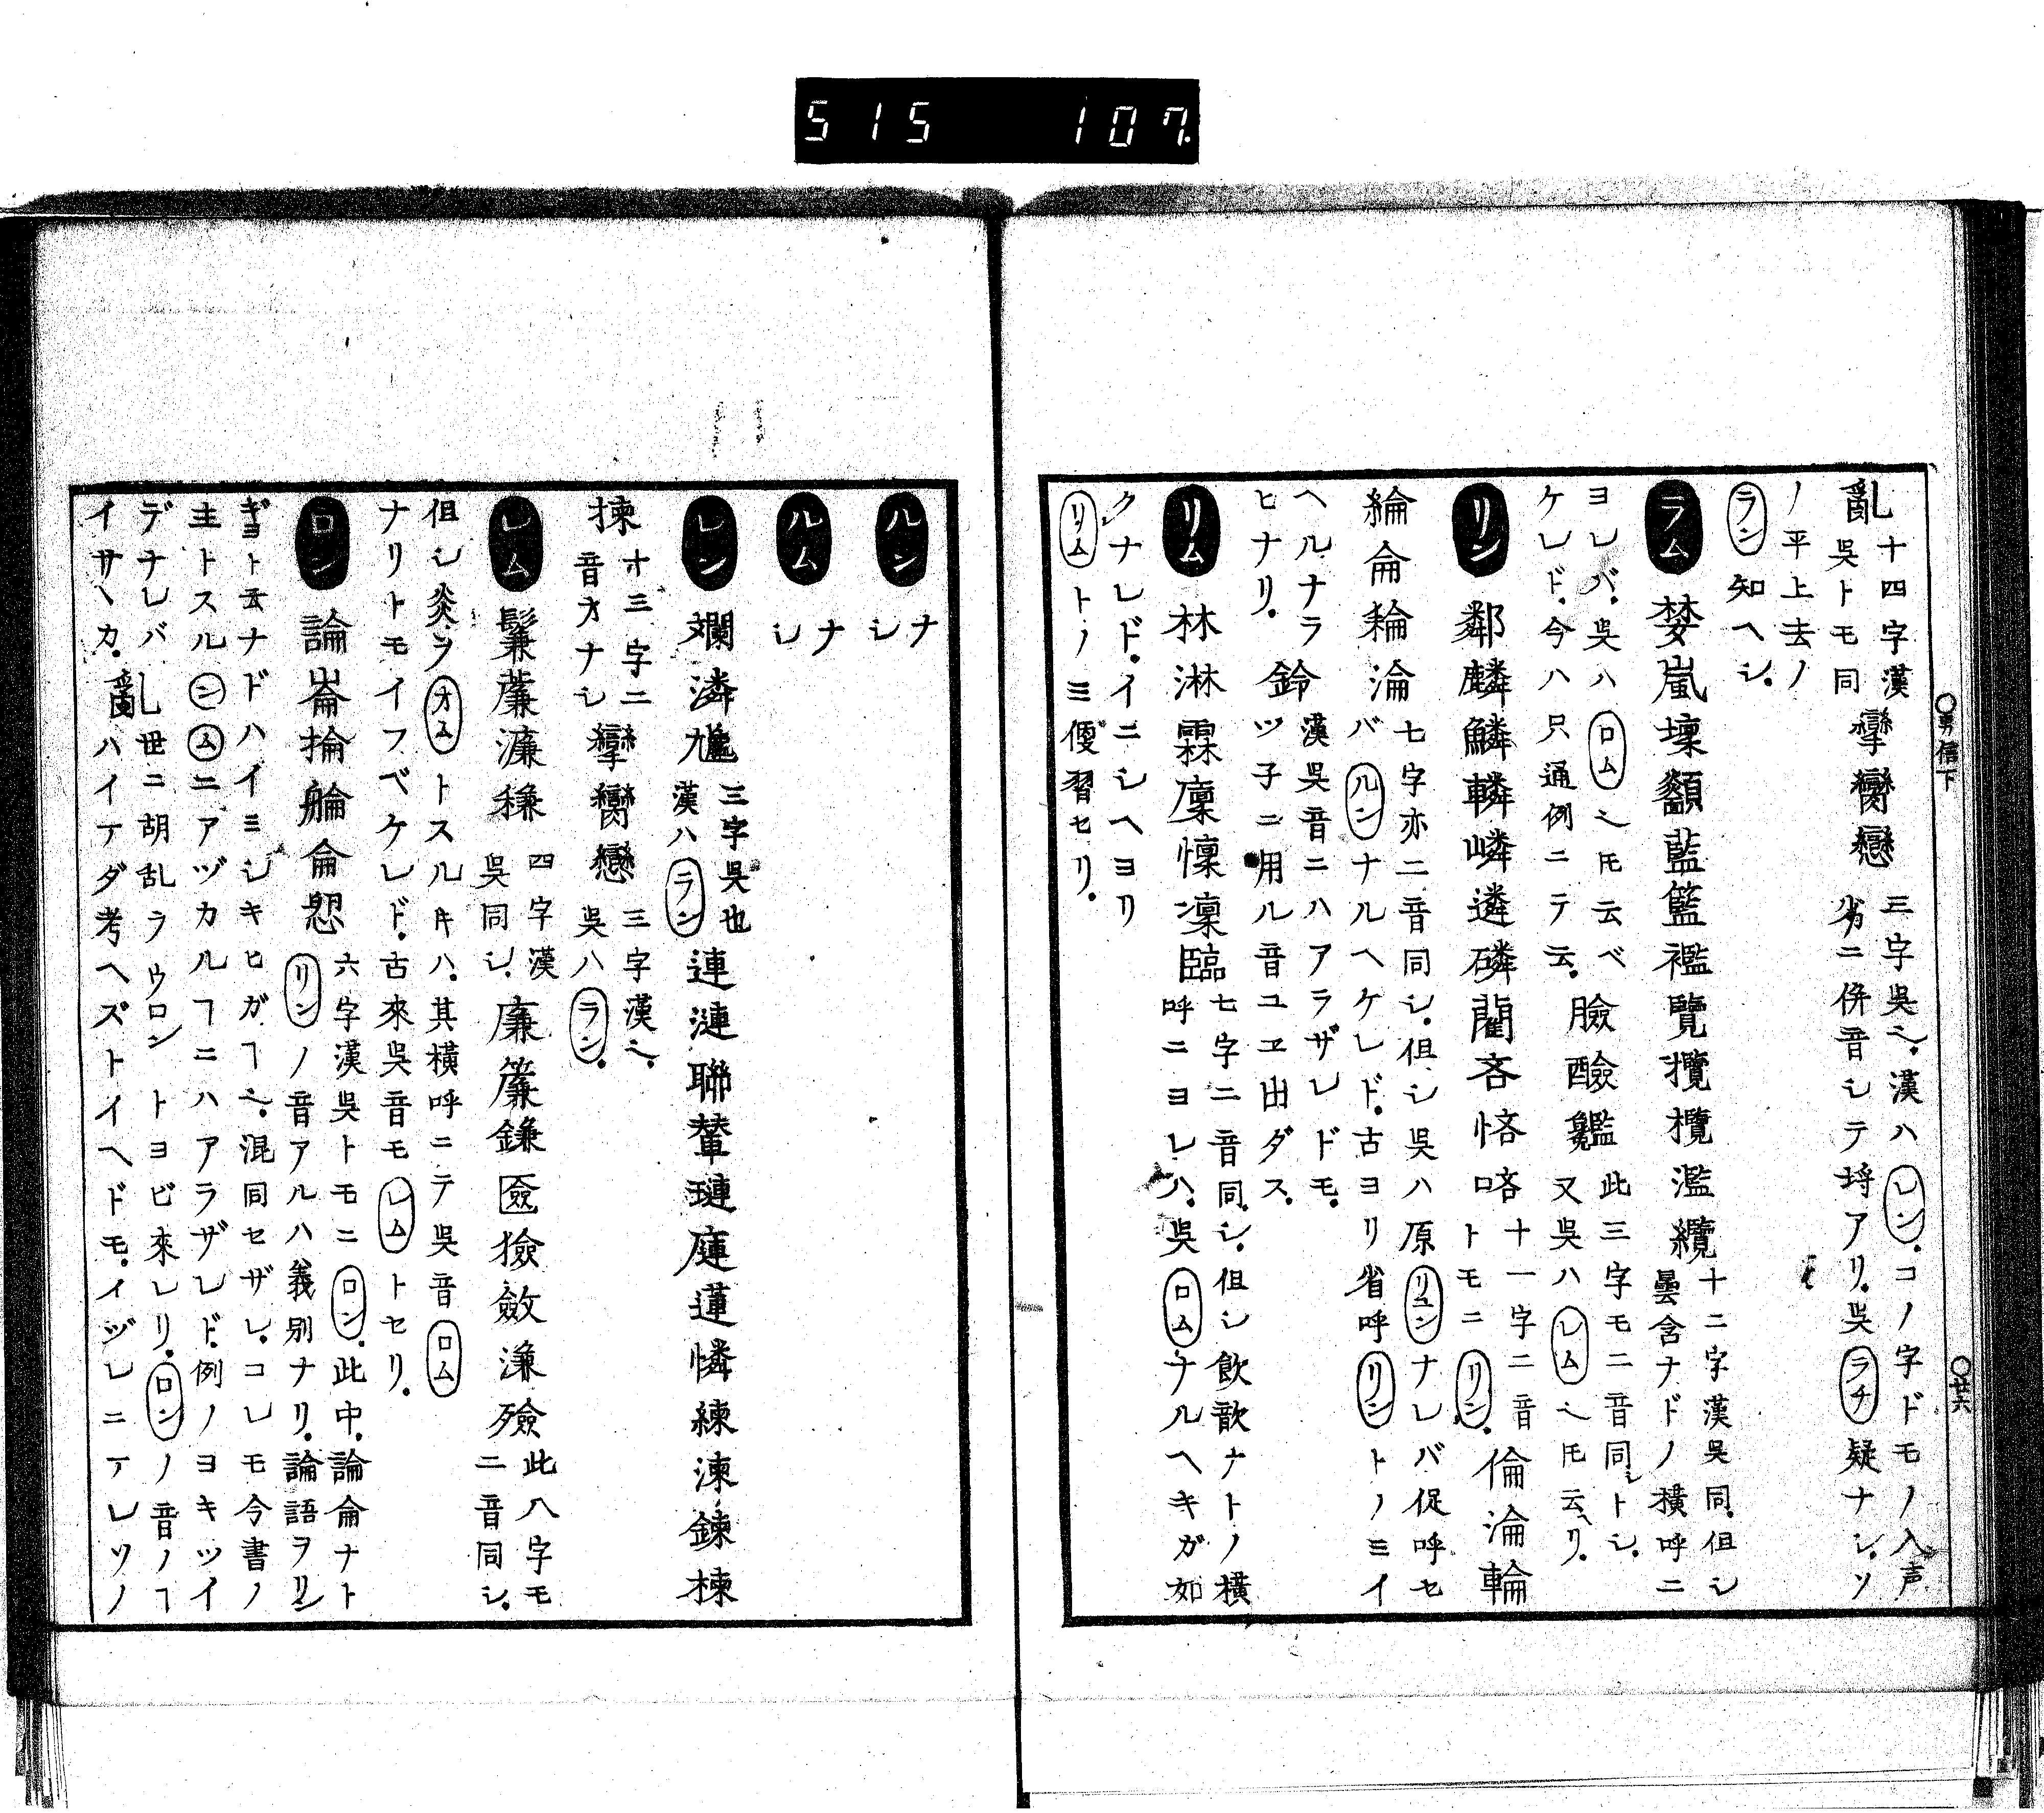 515 107
亂 十四字漢吳トモ同 攣臠戀 三字吳也。漢ハレン。コノ字ドモノ入声劣ニ併音シテ埒アリ。吳ラチ疑ナシ。ソ
ノ平上去ノラン知ヘシ。
ラム 婪嵐壈顲藍籃襤覽攬欖濫纜 十二字漢吳同。但シ曇含ナドノ橫呼ニ
ヨレバ。吳ハロム也トモ云ベケレド。今ハ只通例ニテ云。 臉醶 此三字モ二音同シトシ。又吳ハレム也トモ云ヘリ。
リン 鄰麟鱗轔嶙遴磷藺吝悋 十一字二音トモニリン。 倫淪輪
綸侖耣淪 七字亦二音同シ。但シ吳ハ原リユンナレバ促呼セバルンナルヘケレド。古ヨリ省呼リントノミイ
ヘルナラヒナリ。 鈴 漢吳音ニハアラザレドモ。ツ子ニ用ル音ユヱ出ダス。
リム 林淋霖廩懍凜臨 七字二音同シ。但シ飲歆ナトノ橫呼ニヨレハ。吳ロムナルヘキガ如
クナレド。イニシヘヨリリムトノミ傻習セリ。
勇信下
廿六
ルン ナシ
ルム ナシ
レン 斕潾 三字吳也漢ハラン 連漣聯輦璉蓮憐練湅鍊楝
揀 十三字二音オナシ 攣臠戀 三字漢也。吳ハラン。
レム 鬑薕濂稴 四字漢吳同シ。 廉簾鎌匳獫斂溓殮 此八字モ二音同シ。
但シ炎ヲオムトスルトキハ。其橫呼ニテ吳音ロム
ナリトモイフベケレド。古來吳音モレムトセリ。
ロン 論崙掄侖 六字漢吳トモニロン。此中。論侖ナトリンノ音アルハ義別ナリ。論語ヲリン
ギョト云ナドハイヨシキヒガコト也。混同セザレ。コレモ今書ノ
主トスルンムニアヅカルコトニハアラザレド。例ノヨキツイ
デナレバ 乱 世ニ胡乱ヲウロントヨビ來レリ。ロンノ音ノコト
イサヽカ。亂ハイマダ考ヘズトイヘドモ。イヅレニアレソノ